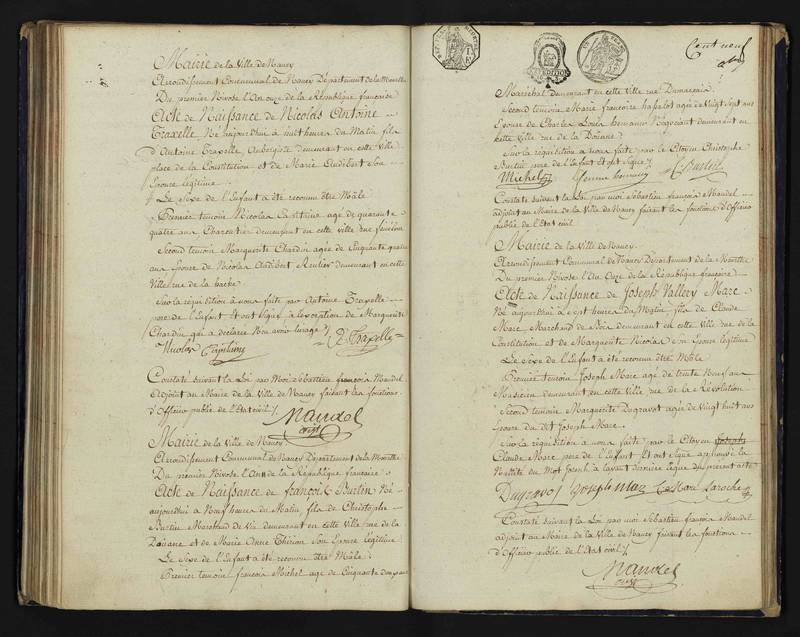 Mairie de la Ville de Nancy
Arrondissement Communal de Nancy Département de la Meurthe
Du premier Nivose l'An onze de la République française
Acte de Naissance de Nicolas Antoine
Trapelle Né aujourdhui à huit heures du Matin fils
d'Antoine Trapelle, Aubergiste demeurant en cette Ville
place de la Constitution et de Marie Audibert Son
Epouse légitime
Le Sexe de l'Enfant a été reconnu être Mâle
Premier temoin Nicolas agé de quarante
quatre ans Charpentier demeurant en cette ville rue
Second temoin Marguerite Chardin agée de Cinquante quatre
ans Epouse de Nicolas Audibert Rentier demeurant en cette
Ville rue de la
Sur la réquisition à nous faite par Antoine Trapelle
pere de l'Enfant Et ont signé, à l'exception de Marguerite
Chardin qui a declaré Ne avoir l'usage
Nicolas
A Trapelle
Constaté suivant la Loi par Moi Sébastien françois Mandel
Adjoint au Maire de la Ville de Nancy faisant les fonctions
d'Officier public de l'Etat civil
Mandel
adjt
Mairie de la Ville de Nancy
Arrondissement Communal de Nancy Département de la Meurthe
Du premier Nivose l'An de la République française
Acte de Naissance de françois Burtin Né
aujourdhui à Neuf heures du Matin fils de Christophe
Burtin Marchand de Vin demeurant en cette Ville rue de la
Douane et de Marie Anne Thirion Son Epouse légitime
Le Sexe de l'Enfant a été reconnu être Mâle
Premier temoin françois Michel agé de Cinquante deux ans
Cent neuf
Maréchal demeurant en cette Ville rue
Second temoin Marie françoise agée de Vingt sept ans
Epouse de Charles Louis Négociant demeurant en
cette Ville rue de la Douane
Sur la réquisition à nous faite par le Citoyen Christophe
Burtin pere de l'Enfant Et ont signé
Michel
C Burtin
Constaté suivant la Loi par moi Sébastien françois Mandel
adjoint au Maire de la Ville de Nancy faisant les fonctions d'Officier
public de l'Etat civil
Mairie de la Ville de Nancy
Arrondissement Communal de Nancy Département de la Meurthe
Du premier Nivose l'An Onze de la République française
Acte de Naissance de Joseph Vallery Marc
Né aujourdhui à sept heures du Matin, fils de Claude
Marc, Marchand de Bois demeurant en cette Ville rue de la
Constitution et de Marguerite Nicolas son Epouse légitime
Le Sexe de l'Enfant a été reconnu être Mâle
Premier temoin Joseph Marc agé de trente Neuf ans
Musicien demeurant en cette Ville rue de la Révolution
Second temoin Marguerite Dugravot agée de Vingt huit ans
Epouse du dit Joseph Marc
Sur la réquisition à nous faite par le Citoyen
Claude Marc pere de l'Enfant Et ont signé approuvé la
Nullité du Mot Joseph à l'avant derniere ligne du présent acte
Dugravot Joseph Marc C Marc Laroche
Constaté suivant la Loi par moi Sébastien françois Mandel
adjoint au Maire de la Ville de Nancy faisant les fonctions
d'Officier public de l'Etat civil
Mandel
adjt